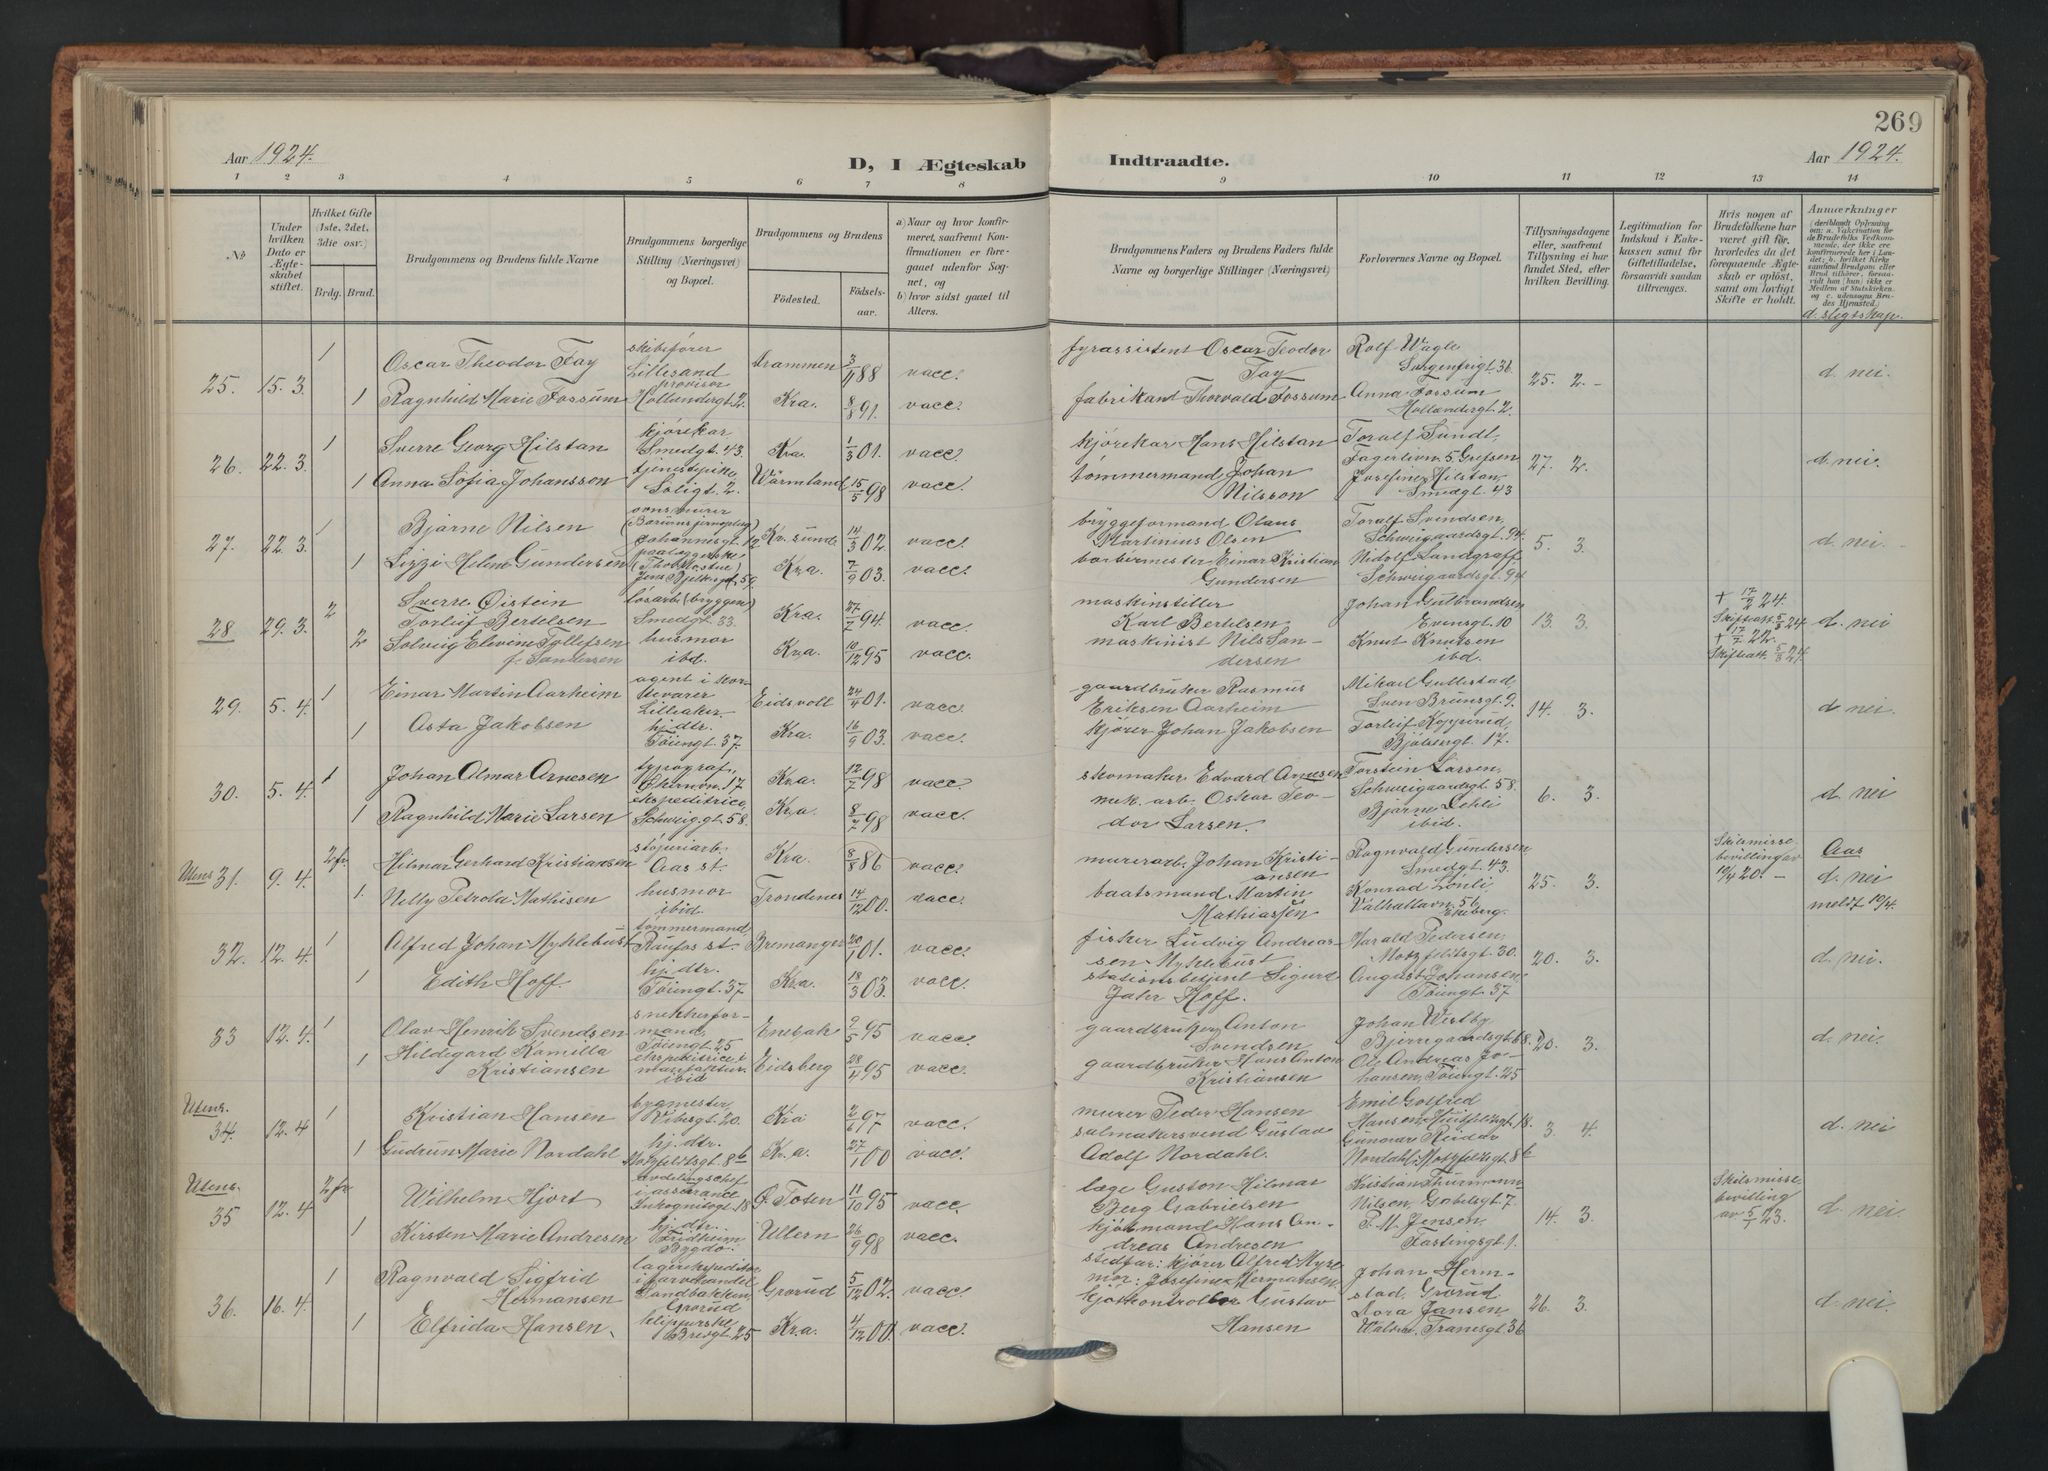 269
Aar 1924.
D, I Ægteskab Indtraadte.
Aar 1924.
1 2 3 4 5 6 7 8 9 10 11 12 13 14
№
Under hvilken Dato er Ægteskabet stiftet.
Hvilket Gifte (1ste, 2det, 3die osv.)
Brdg. Brud.
Brudgommens og Brudens fulde Navne
Brudgommens borgerlige Stilling (Næringsvei) og Bopæl.
Brudgommens og Brudens
Födested. Födsels-aar.
a) Naar og hvor konfirmeret, saafremt Konfirmationen er foregaaet udenfor Sognet, og
b) hvor sidst gaael til Alters.
Brudgommens Faders og Brudens Faders fulde Navne og borgerlige Stillinger (Næringsvei)
Forlovernes Navne og Bopæl.
Tillysningsdagene eller, saafremt Tillysning ei har fundet Sted, efter hvilken Bevilling.
Legitimation for Indskud i Enkekassen samt for Giftetilladelse, forsaavidt saadan tiltrænges.
Hvis nogen af Brudefolkene har været gift för, hvorledes da det foregaaende Ægteskab er oplöst, samt om lovligt Skifte er holdt.
Anmærkninger
d. slegtskap.
25. 15. 3. 1 Oscar Theodor Fay skibsfører Lillesand Drammen 3/11 88 vacc. fyrassistent Oscar Teodor Fay Rolf Wagle Sorgenfrigt 36 25. 2. - d. nei.
1 Ragnhild Marie Fossum provisor Hollendergt. 2. Kra. 8/8 91. vacc. fabrikant Thorvald Fossum Anna Fossum Hollendergt. 2.
26. 22. 3. 1 Sverre Georg Hilstan kjørekar Smedgt. 43. Kra. 1/3 01. vacc. kjørekar Hans Hilstan Toralf Sundt, Fagerlivn. 5. Grefsen 27. 2. d. nei.
1 Anna Sofia Johansson tjenestepike, Soligt. 2. Wärmland 15/5 98 vacc. tømmermand Johan Nilsson Josefine Hilstan, Smedgt. 43
27. 22. 3. 1 Bjarne Nilsen ovnsmurer Johannisgt. 12 Kr.sund 14/3 02. vacc. bryggeformand Olaus Martinius Olsen Toralf Svendsen, Schweigaardsgt. 94. 5. 3. d. nei.
1 Lizzi Helene Gundersen Jens Bjelkesgt. 59. Kra. 7/9 03. vacc. barbermester Einar Kristian Gundersen Nidolf Landgraff Schweigaardsgt. 94
28 29. 3. 2 Sverre Øistein Torleif Bertelsen løsarb. (bryggen) Smedgt. 33. Kra. 27/7 94. vacc. maskinstiller Karl Bertelsen Johan Gulbrandsen Evensgt. 10 13. 3. + 17/2 24. Skifteatt. 5/3 24 d. nei
2 Solveig Elevine Tollefsen f. Sandersen husmor ibd. Kra. 10/12 95 vacc. maskinist Nils Sandersen Knut Knutsen ibd. + 17/7 22. Skifteatt. 5/8 24.
29. 5. 4. 1 Einar Martin Aarheim agent i Lilleaker. Eidsvoll 24/4 01. vacc. gaardbruker Rasmus Eriksen Aarheim Mikael Gullestad, Sven Brunsgt. 9. 14. 3. d. nei.
1 Asta Jakobsen hj.dtr. Tøiengt. 37. Kra. 16/9 03. vacc. kjører Johan Jakobsen Torleif Kopperud, 17.
30. 5. 4. 1 Johan Almar Arnesen typograf, 17 Kra. 12/7 98 vacc. skomaker Edvard Arnesen Torstein Larsen, Schweigaardsgt. 58. 6. 3. d. nei
1 Ragnhild Marie Larsen ekspeditrice, Schweiggt. 58. Kra. 8/7 98 vacc. mek. arb. Oskar Teodor Larsen. Bjarne Lehli ibid.
Utens 31. 9. 4. 2 fr. Hilmar Gerhard Kristiansen støperiarb. Aas st. Kra. 8/8 86 vacc. murerarb. Johan Kristiansen Ragnvald Gundersen Smedgt. 43. 25. 3. Skilsmissebevilling av 19/4 20. - Aas d. nei meldt 19/4.
1. Nelly Petrola Mathisen husmor ibid. Trondenes 14/12 00. vacc. baatsmand Martin Mathiassen Konrad Lønli, Valhallavn. 56 Ekeberg.
32. 12. 4. 1 Alfred Johan Myklebust tømmermand, Raufos st. Bremanger 20/1 01. vacc. fisker Ludvig Andreassen Myklebust Harald Pedersen, Motzfeldtsgt. 30. 20. 3. d. nei.
1 Edith Hoff. hj.dtr. Tøiengt. 37 Kra. 18/3 03. vacc. stationsbetjent Sigurd Jahr Hoff. August Johansen, Tøiengt. 37
33 12. 4. 1 Olav Henrik Svendsen snekkerformand, Tøiengt. 25 Enebak 9/5 95 vacc. gaardbruker Anton Svendsen Johan Westby Bjerregaardsgt 68. 20. 3. d. nei.
1 Hildegard Kamilla Kristiansen ekspeditrice i manufaktur. ibid Eidsberg 28/4 95 vacc. gaardbruker Hans Anton Kristiansen Ole Andreas Johansen, Tøiengt. 25
Utens. 34. 12. 4 1 Kristian Hansen bremester Vibesgt. 20. Kra 2/6 97 vacc. murer Peder Hansen Emil Golfred Hansen, Huitfeldtsgt. 18. 3. 4. d. nei
1 Gudrun Marie Nordahl hj.dtr. Motzfeldtsgt. 8b Kr.a. 27/1 00 vacc. salmakersvend Gustav Adolf Nordahl. Gunnar Reidar Nordahl, Motzfeldtsgt 8b
Utens. 35 12. 4 2 fr Wilhelm Hjort avdelingschef i assurance Inkognitogt. 18 Ø. Toten 11/10 95 vacc. læge Guston Hilmar Berg Gabrielsen Kristian Thurmann-Nilsen, Gabelsgt. 7. 14. 3. Skilsmissebevilling av 5/1 23. d. nei.
1 Kirsten Marie Andresen hj.dtr. Fridheim Bygdø. Ullern 26/9 98 vacc. kjøbmand Hans Andreas Andresen P. M. Jensen, Fastingsgt. 1.
36. 16. 4. 1 Ragnvald Sigfrid Hermansen lagerekspeditør i farvehandel Sandbakken, Grorud Grorud 5/12 02. vacc. stedfar: kjører Alfred Myhr mor: Josefine Hermansen Johan Hermstad, Grorud. 26. 3. d. nei.
1 Elfrida Hansen. klipperske Bredgt. 25 Kra. 4/12 00 vacc. kjøtkontrollør Gustav Hansen Dora Jansen Tranesgt. 36